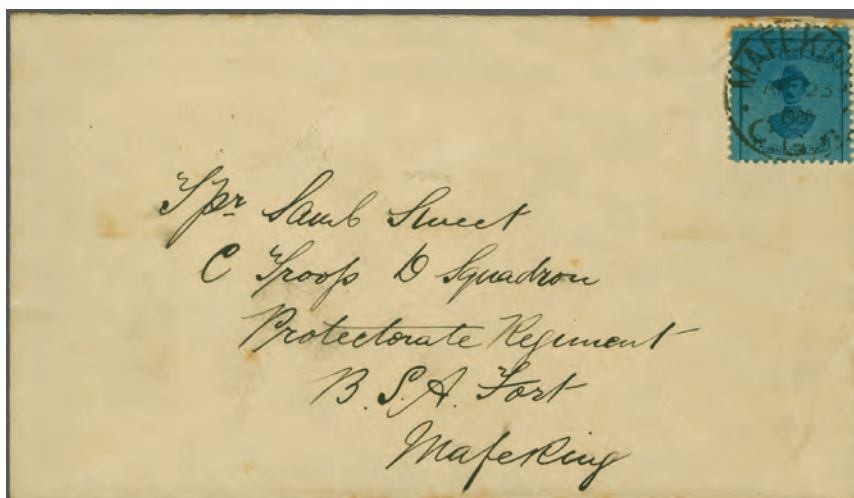 MAFEKING
AP 23
1900
C.G.H.
Tpr Samb Sweet
C Troop D Squadron
Protectorate Regiment
B.S.A. Fort
Mafeking